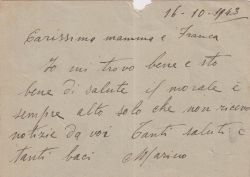 16-10-1943
Carissima mamma e Franca
Io mi trovo bene e sto
bene di salute il morale è
sempre alto solo che non ricevo
notizie da voi Tanti saluti e
tanti baci Marino